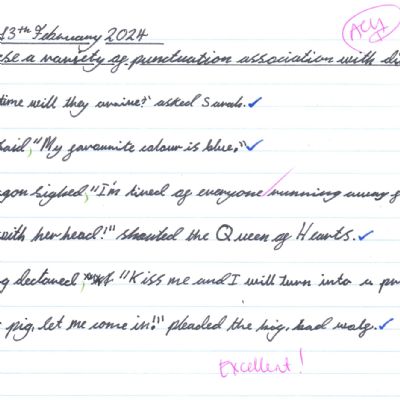 13th February 2024
ACH
use a variety of punctuation association with di
time will they arrive?" asked Sarah.
said, "My favourite colour is blue."
agon sighed, "I'm tired of everyone running away f
with her head!" shouted the Queen of Hearts.
g declared, "Kiss me and I will turn into a pr
pig, let me come in!" pleaded the big, bad wolf.
Excellent!